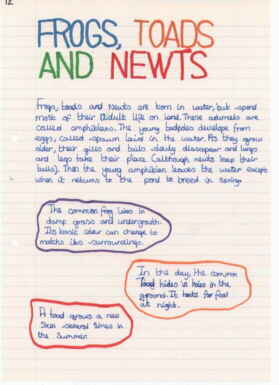 12
FROGS, TOADS
AND NEWTS
Frogs, toads and Newts are born in water, but spend
most of their Adult life on land. These animals are
called amphibians. The young tadpoles develope from
eggs, called spawn laid in the water. As they grow
older, their gills and tails slowly disappear and lungs
and legs take their place (although newts keep their
tails). Then the young amphibian leaves the water except
when it returns to the pond to breed in Spring.
The common frog lives in
damp grass and undergrowth.
Its basic colour can change to
match its surroundings.
In the day, the common
Toad hides in holes in the
ground. It hunts for food
at night.
A toad grows a new
Skin several times in
the Summer.